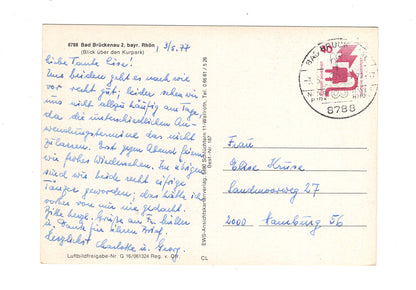 8788 Bad Brückenau 2, bayr. Rhön
(Blick über den Kurpark)
3/5.77
liebe Tante Lisa!
Uns beiden geht es nach wie
vor recht gut; leider sehen wir
uns nicht allzu häufig am Tage,
da die unterschiedlichen An-
wendungstermine das nicht
zulassen. Erst gegen Abend feiern
wir frohes Wiedersehen. Zu
sind wir beide recht eifrige
Tänzer geworden; das hätte ich
vorher von mir nie gedacht.
herzl. Grüße an
u. Dank für Ihren Brief.
Herzlichst Charlotte u. Georg.
Luftbildfreigabe-Nr. G 16/061324 Reg. v. Ofr.
CL
EWS-Ansichtskartenverlag, 6490 Schlüchtern 11-Wallroth, Tel. 0 66 61 / 5 26
Best.-Nr. 187
BAD BRÜCK
8788
Frau
Elise Kruse
Landmoorweg 27
2000 Hamburg 56